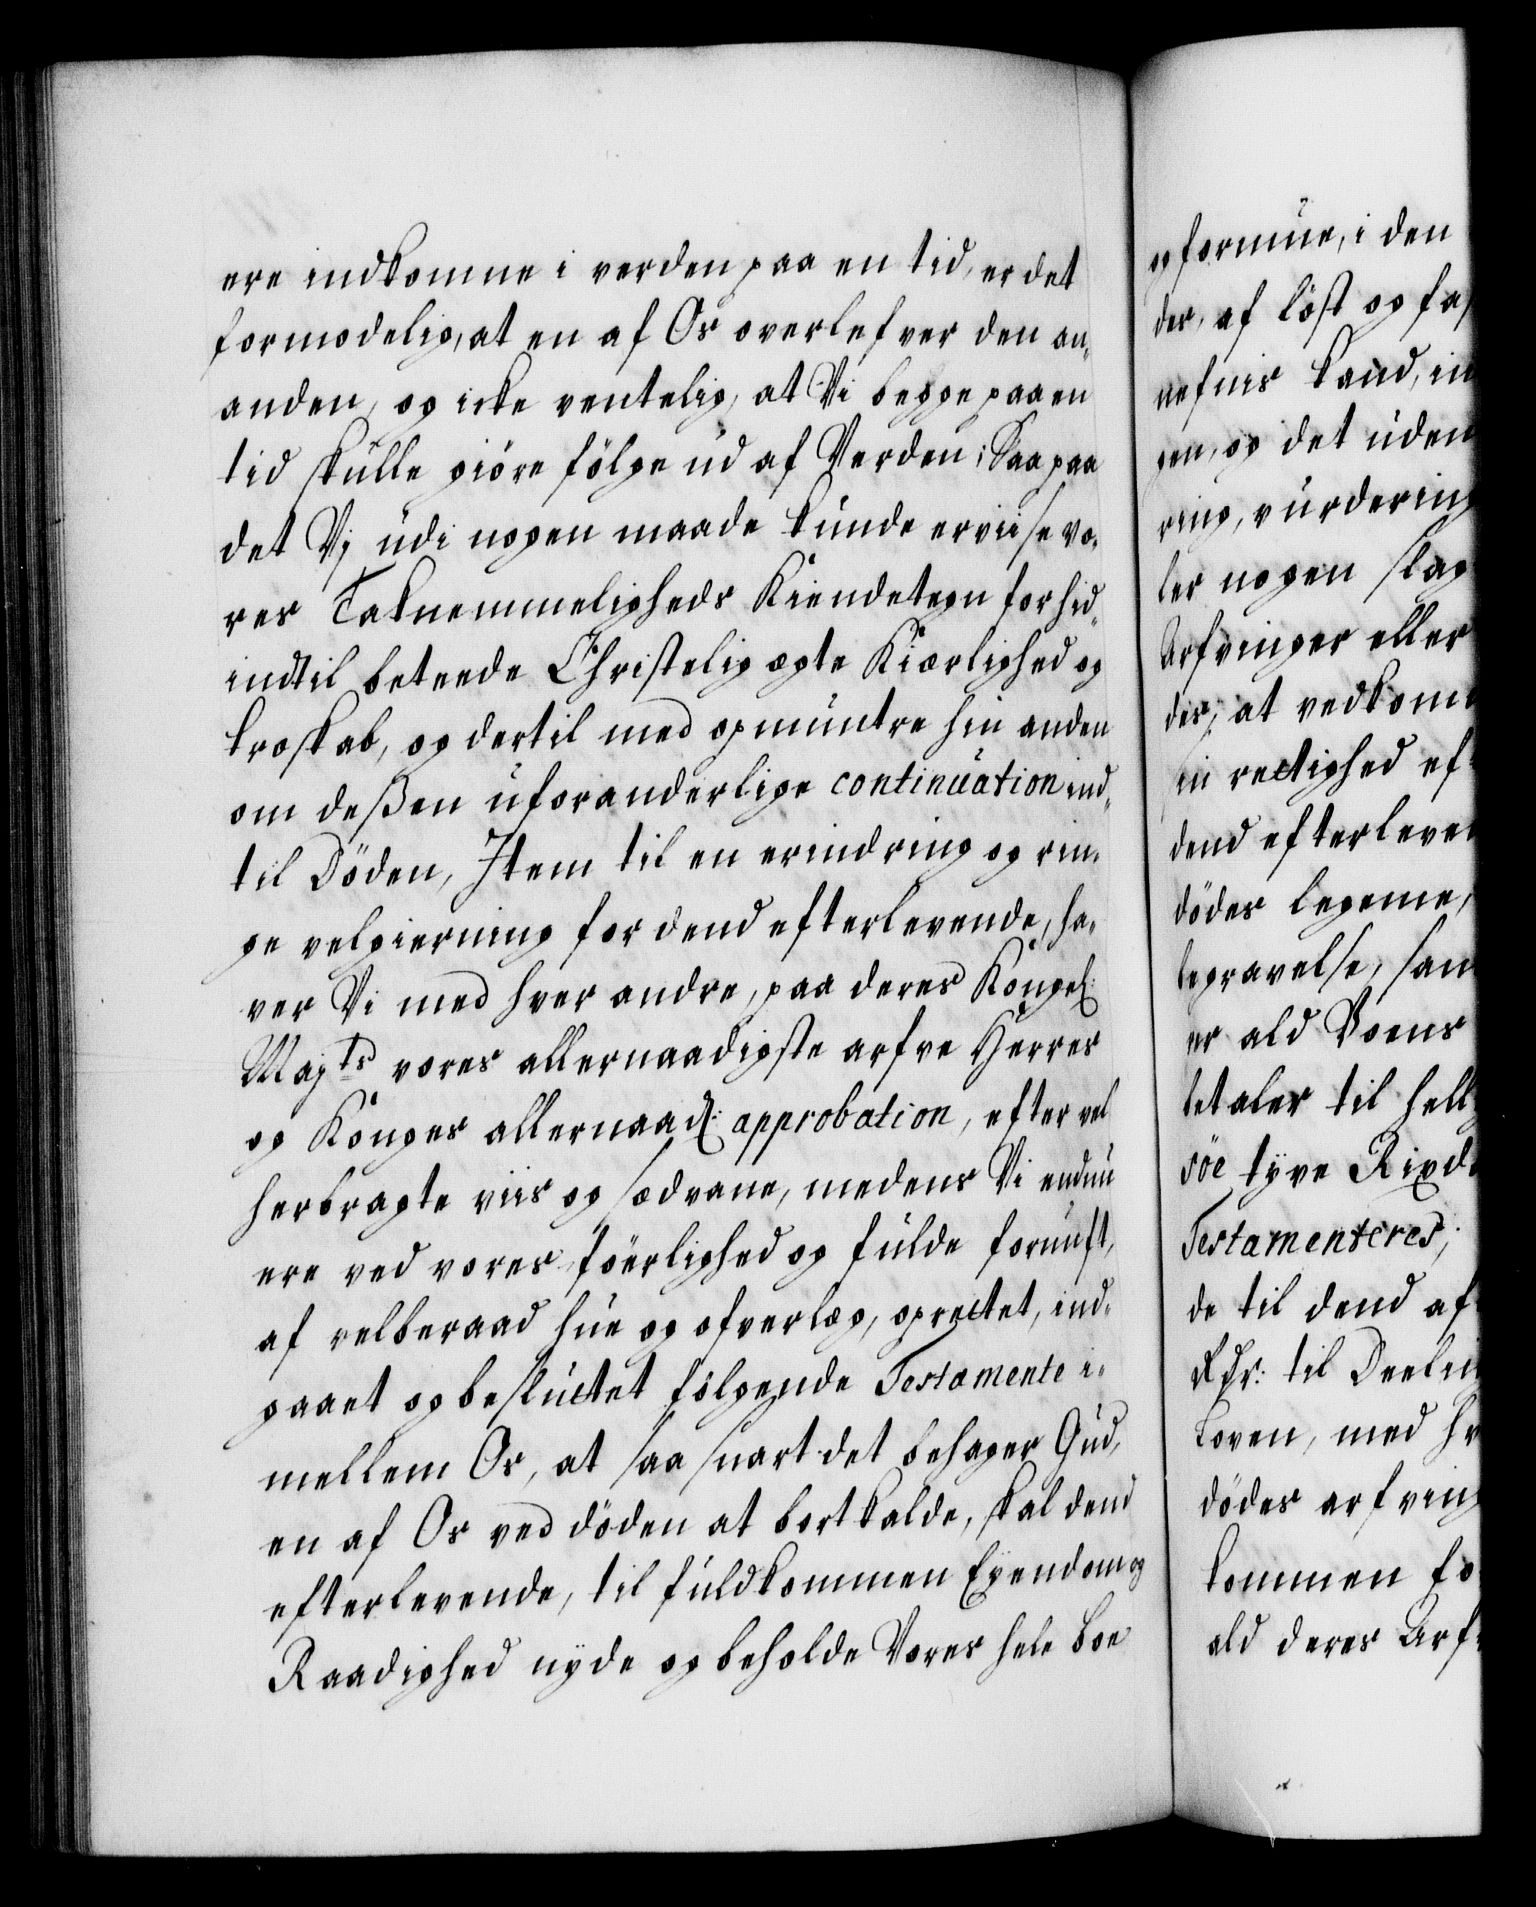 ere indkomne i verden paa en tid, er det
formodelig, at en af Os overlefver den an„
anden, og icke ventelig, at Vi begge paa en
tid skulle giöre fölge ud af Verden; Saa paa
det Vi udi nogen maade kunde erviise vo„
res Taknemmeligheds Kiendetegn for hid„
indtil beteede Christelig ægte Kiærlighed og
troskab, og dertil med opmuntre hin anden
om deßen uforanderlige continuation ind„
til Döden, Item til en erindring og rin„
ge velgierning for dend efterlevende, ha„
ver Vi med hver andre, paa deres Kongel:
Majts vores allernaadigste arfve Herres
og Konges allernaad: approbation, efter vel
herbragte viis og sædvane, medens Vi endnu
ere ved vores föerlighed og fulde fornuft,
af velberaad hue og ofverlæg, oprettet, ind„
gaaet og besluttet fölgende Testamente i„
mellem Os, at saa snart det behager Gud,
en af Os ved döden at bortkalde, skal dend
efterlevende, til fuldkommen Eyendom og
Raadighed nyde og beholde Vores hele boe
og formue, i den
der, af löst og fas
nefnis kand, in
gen, og det uden
ring, vurdering
ler nogen slag
Arfvinger eller
des, at vedkom
sin rettighed ef
dend efterleven
dödes legeme,
begravelse, sam
er ald Voens
betaler til hell
söe tyve Rixd
Testamenteres,
de til dend af
Rdr: til Deeling
Loven, med hv
dödes arfving
kommen fo
ald deres Arf